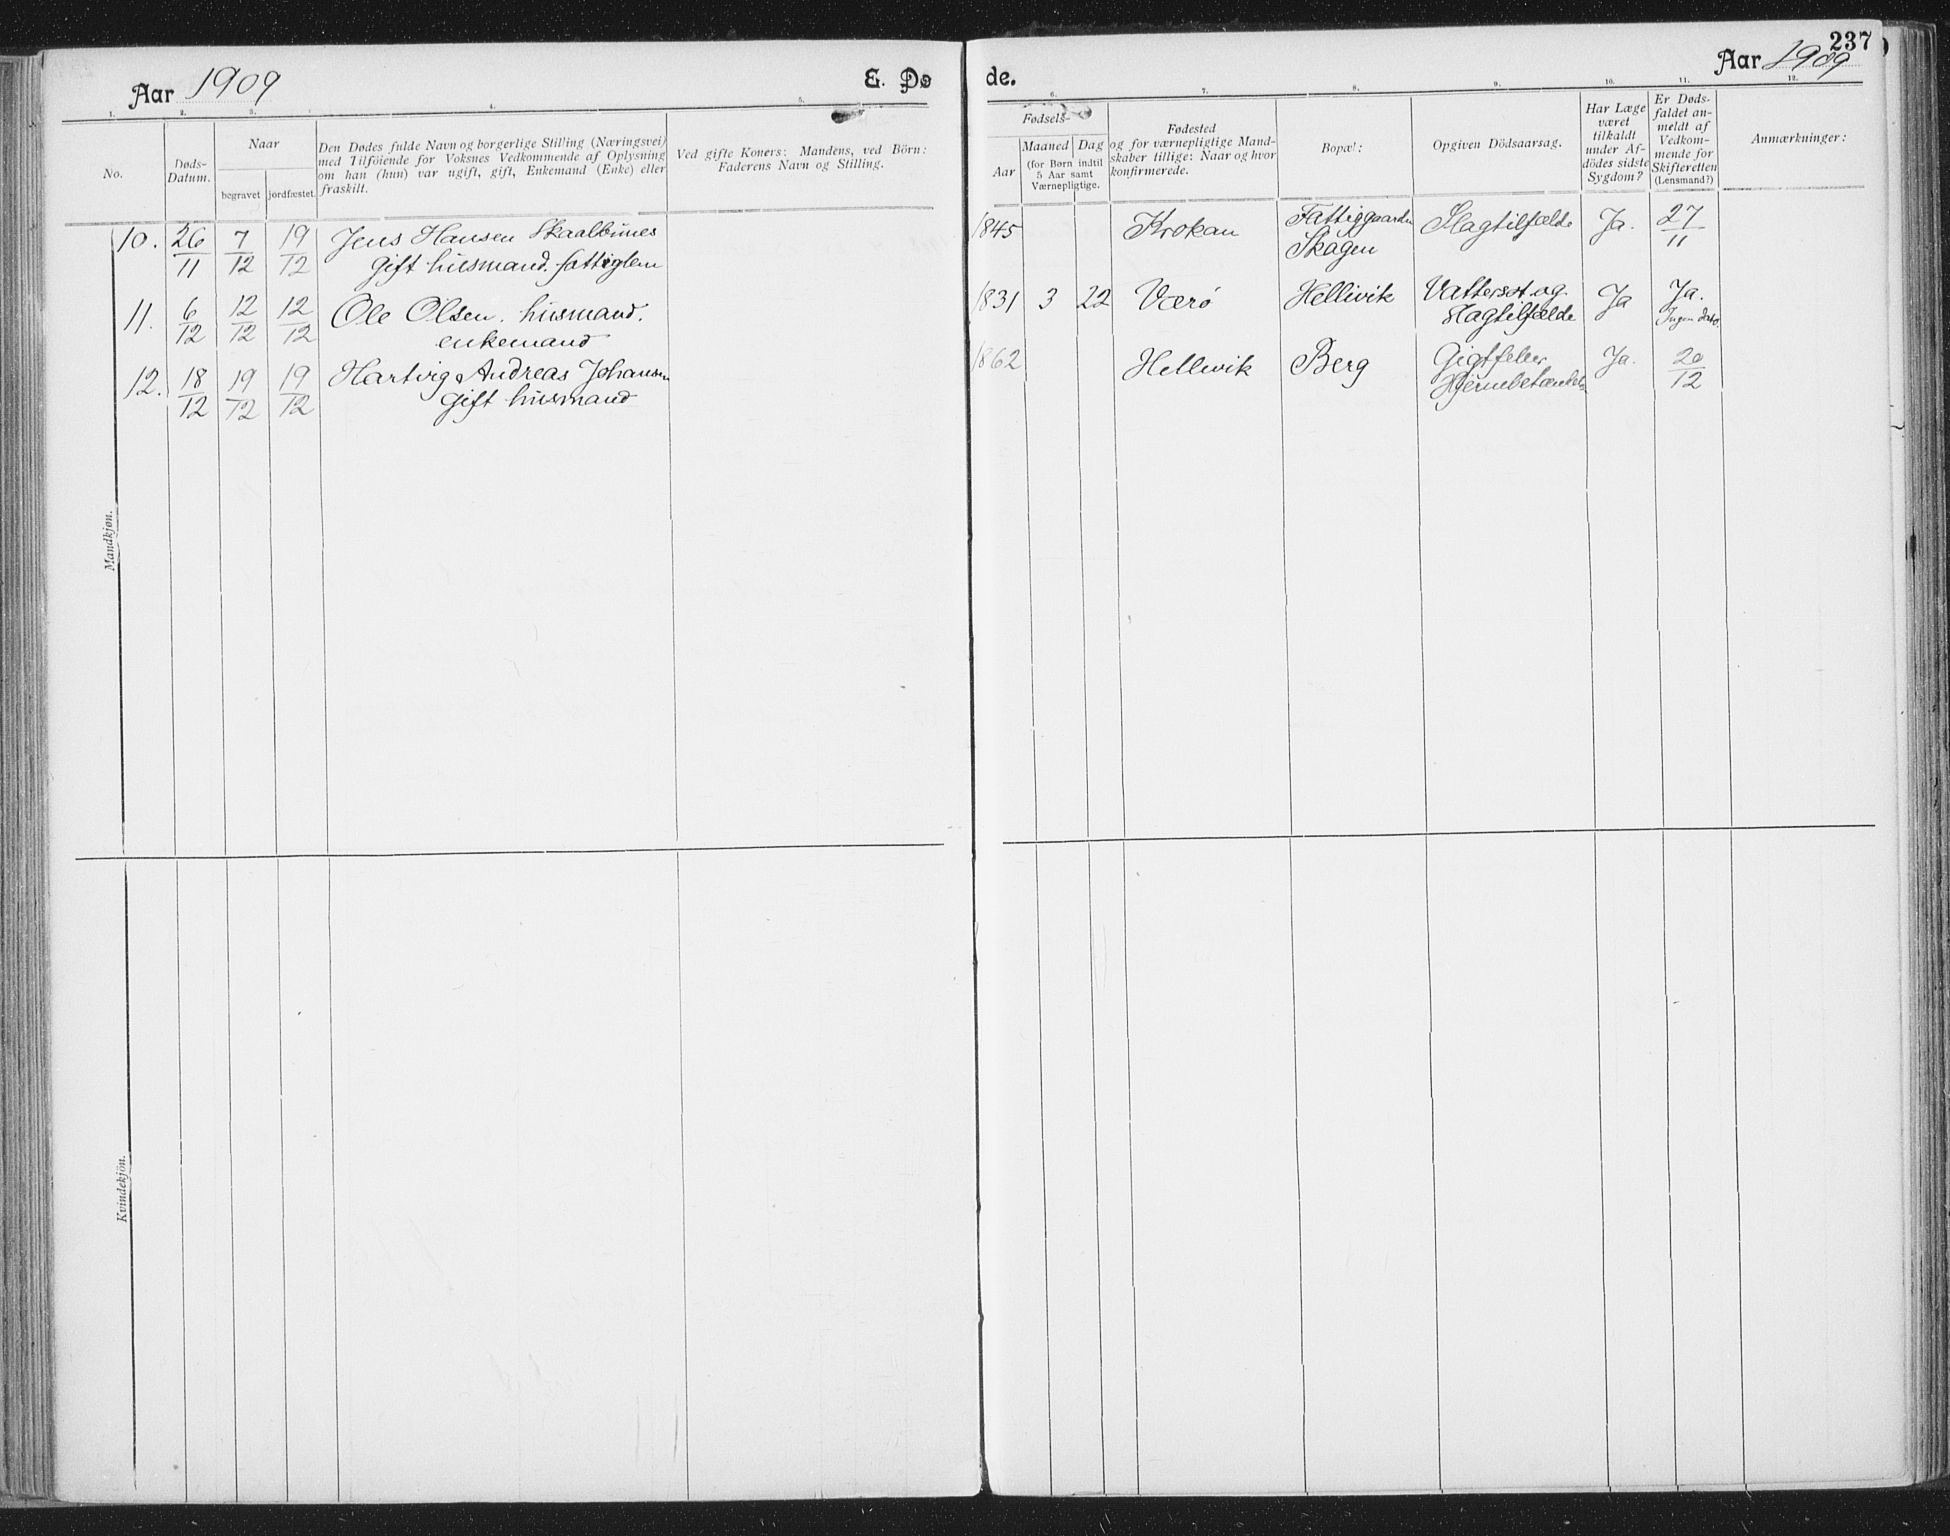 Aar 1909
E. Dø
1. 2. 3. 4. 5.
No.
Døds-
Datum.
Naar
begravet
jordfæstet.
Den Dødes fulde Navn og borgerlige Stilling (Næringsvei)
med Tilföiende for Voksnes Vedkommende af Oplysning
om han (hun) var ugift, gift, Enkemand (Enke) eller
fraskilt.
Ved gifte Koners: Mandens, ved Börn:
Faderens Navn og Stilling.
10. 26/11 7/12 19/12 Jens Hansen Skaalbunes
Gift husmand. fattiglem
11. 6/12 12/12 12/12 Ole Olsen. husmand.
enkemand
12. 18/12 19/12 19/12 Hartvig Andreas Johansen
Gift husmand
Mandkjøn.
Kvindekjön.
237
de.
Aar 1909
6. 7. 8. 9. 10. 11. 12.
Fødsels-
Aar
Maaned
Dag
(for Børn indtil
5 Aar samt
Værnepligtige.
Fødested
og for værnepligtige Mand-
skaber tillige: Naar og hvor
konfirmerede.
Bopæl:
Opgiven Dödsaarsag.
Har Læge
været
tilkaldt
under Af-
dödes sidste
Sygdom?
Er Døds-
faldet an-
meldt af
Vedkom-
mende for
Skifteretten
(Lensmand?)
Anmærkninger:
1845 Krokan Fattiggaarden Slagtilfælde Ja. 27/11
Skagen
1831 3 22 Værø Hellivik Vattersot og Ja Ja.
Slagtilfælde Ingen dato.
1862 Hellevik Berg Gigtfeber Ja. 20/12
Hjernebetændelse